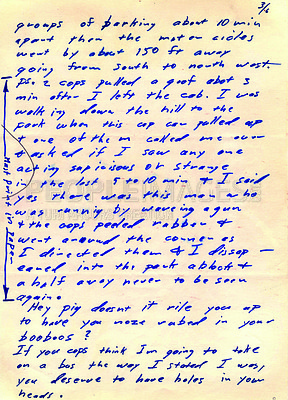 3/6
groups of barking about 10 min
apart then the motor cicles
went by about 150 ft away
going from south to north west.
ps. 2 cops pulled a goof abot 3
min after I left the cab. I was
walking down the hill to the
park when this cop car pulled up
+ one of them called me over
+ asked if I saw any one
acting sapicisous or strange
in the last 5 to 10 min + I said
yes there was this man who
was runnig by waveing a gun
& the cops peeled rubber +
went around the corner as
I directed them + I dissap-
eared into the park a block +
a half away never to be seen
again.
Must print in paper
Hey pig doesnt it rile you up
to have you noze rubed in your
booboos?
If you cops think I'm going to take
on a bus the way I stated I was,
you deserve to have holes in your
heads.